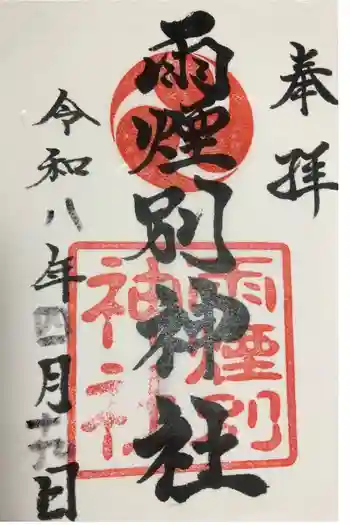 奉拝
雨煙別神社
雨煙別
神社
令和八年四月十九日